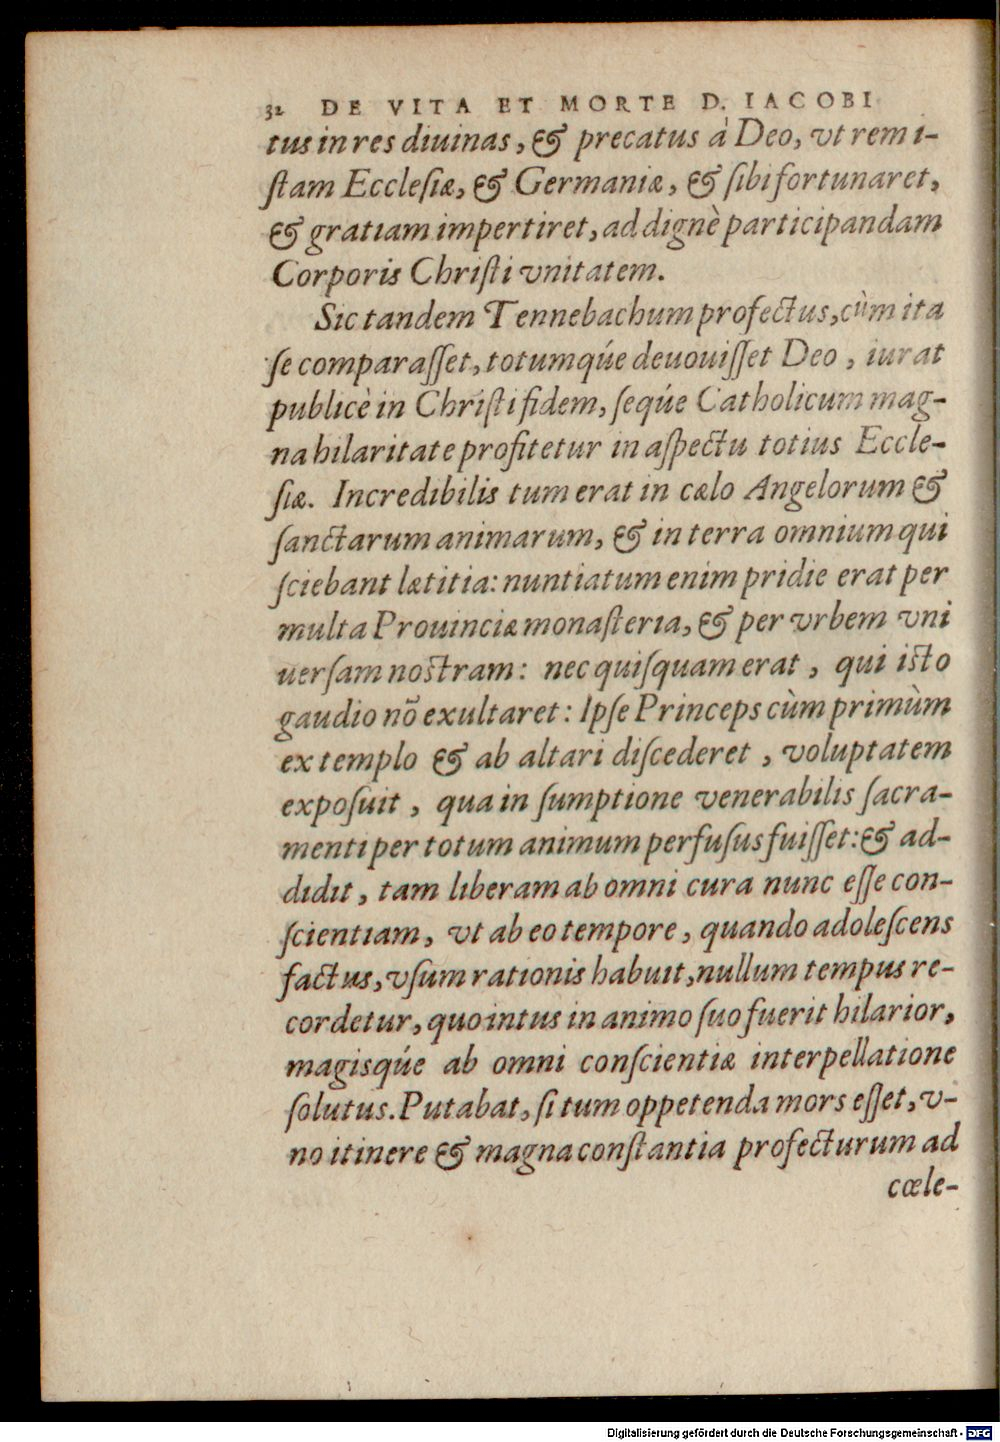 32 DE VITA ET MORTE D. IACOBI
tus in res diuinas, & precatus à Deo, vt rem i-
ſtam Eccleſiæ, & Germaniæ, & ſibi fortunaret,
& gratiam impertiret, ad dignè participandam
Corporis Chriſti vnitatem.
Sic tandem Tennebachum profectus, cùm ita
ſe comparaſſet, totumqúe deuouiſſet Deo, iurat
publicè in Chriſti fidem, ſeqúe Catholicum mag-
na hilaritate profitetur in aſpectu totius Eccle-
ſiæ. Incredibilis tum erat in cælo Angelorum &
ſanctarum animarum, & in terra omnium qui
ſciebant lætitia: nuntiatum enim pridie erat per
multa Prouinciæ monaſteria, & per vrbem vni
uerſam noſtram: nec quiſquam erat, qui iſto
gaudio nõ exultaret: Ipſe Princeps cùm primùm
ex templo & ab altari diſcederet, voluptatem
expoſuit, qua in ſumptione venerabilis ſacra-
menti per totum animum perfuſus fuiſſet: & ad-
didit, tam liberam ab omni cura nunc eſſe con-
ſcientiam, vt ab eo tempore, quando adoleſcens
factus, vſum rationis habuit, nullum tempus re-
cordetur, quo intus in animo ſuo fuerit hilarior,
magisqúe ab omni conſcientiæ interpellatione
ſolutus. Putabat, ſi tum oppetenda mors eſſet, v-
no itinere & magna conſtantia profecturum ad
cœle-
Digitalisierung gefördert durch die Deutsche Forschungsgemeinschaft - DFG